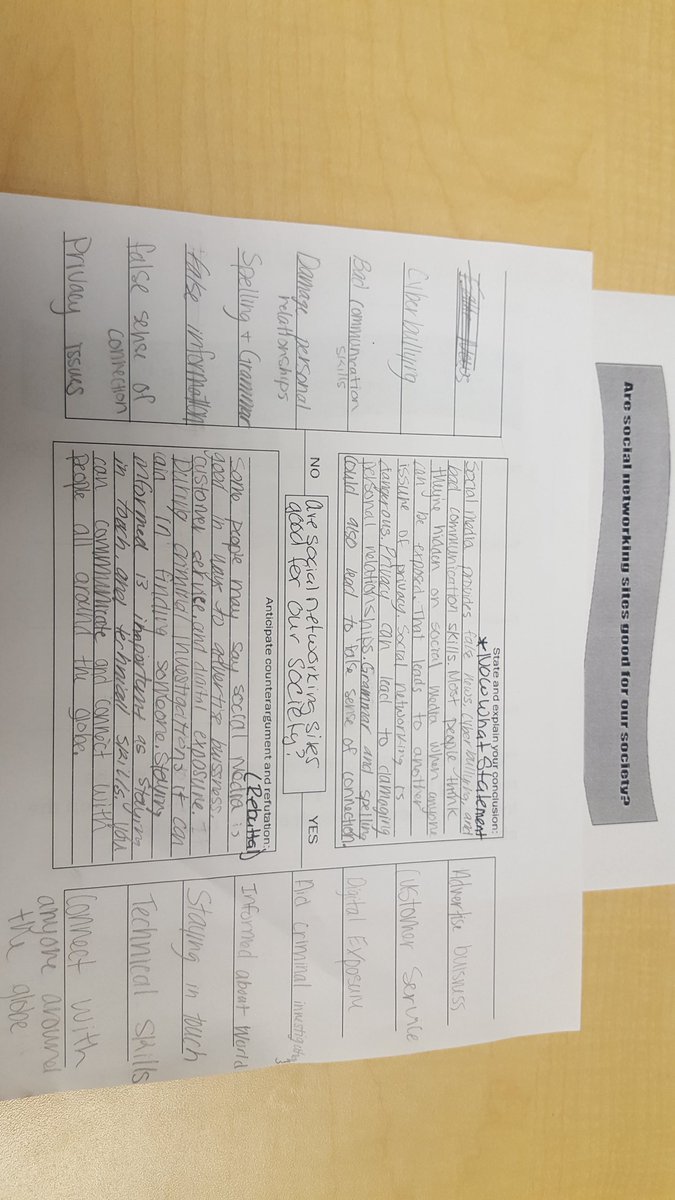 Are social networking sites good for our society?
Cyberbullying
Bad communication
skills
Damage personal
relationships
Spelling + Grammar
False information
false sense of
connection
Privacy issues
State and explain your conclusion:
*Now What Statement
Social media provides fake news, cyberbullying and
bad communication skills. Most people think
they're hidden on social media when anyone
can be exposed. That leads to another
issuhe of privacy. Social networking is
dangerous. Privacy can lead to damaging
personal relationships. Grammar and spelling
could also lead to false sense of connection.
NO
are social networking sites
good for our society?
YES
Anticipate counterargument and refutation:
(Rebuttal)
Some people may say social media is
good in ways to advertise buisness,
customer service, and digital exposure.
During criminal investigations it can
aid in finding someone. Staying
informed is important as staying
in touch and technical skills. You
can communicate and connect with
people all around the globe.
Advertise buisness
Customer Service
Digital Exposure
Aid criminal investigating
Informed about World
Staying in touch
Technical Skills
Connect with
anyone around
the globe